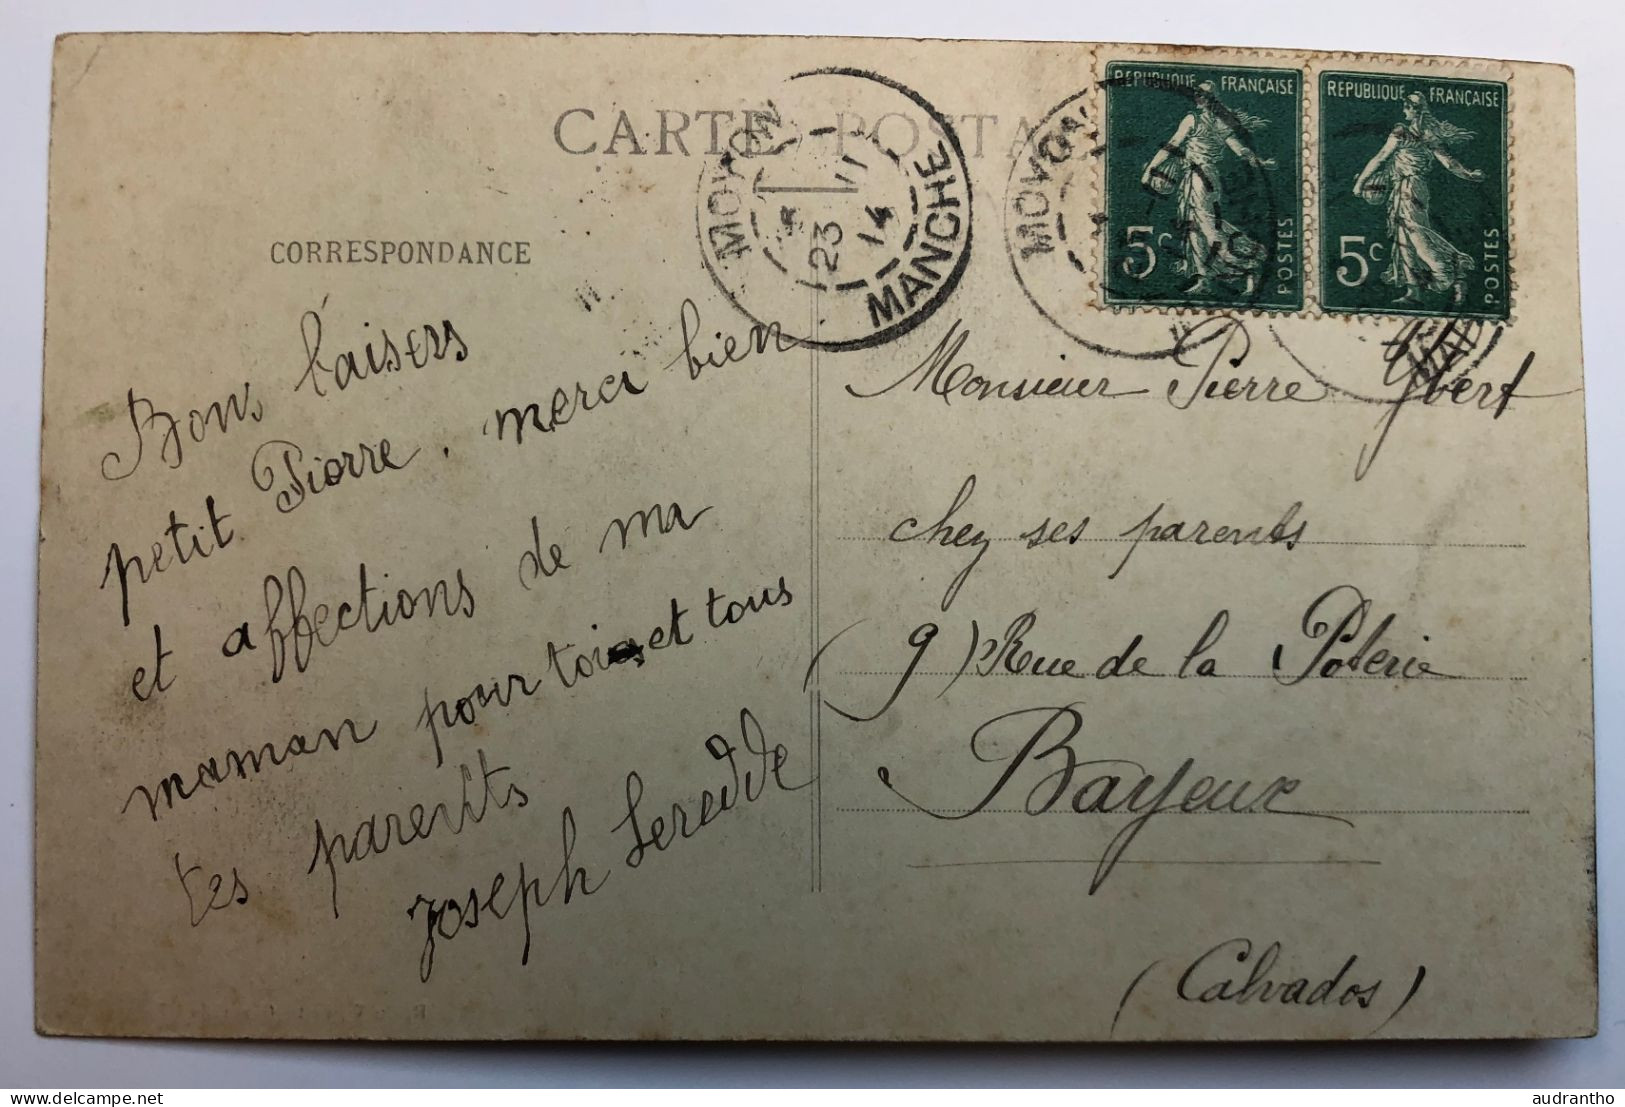 CARTE POSTA
CORRESPONDANCE
MOYON
23 - 11
14
MANCHE
MOYON
REPUBLIQUE FRANÇAISE
5c
POSTES
REPUBLIQUE FRANÇAISE
5c
POSTES
Bons baisers
petit Pierre, merci bien
et affections de ma
maman pour toi et tous
tes parents
Joseph Leredde
Monsieur Pierre Ybert
chez ses parents
(9) Rue de la Poterie
Bayeux
(Calvados)
audrantho